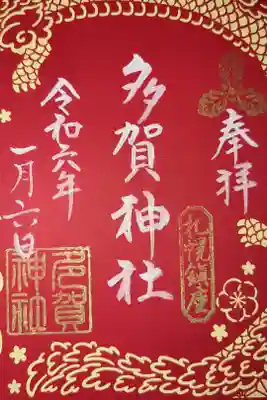 奉拝
札幌鎮座
多賀神社
令和六年
一月六日
多賀
神社